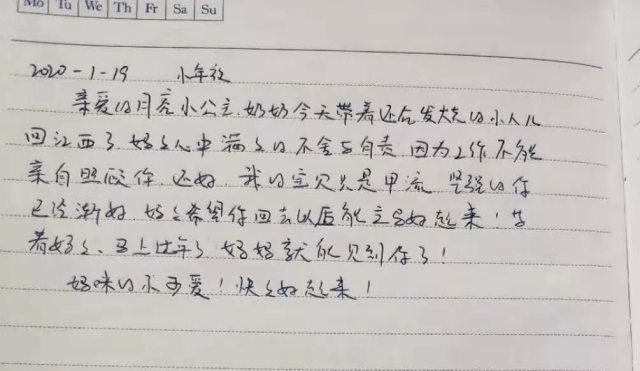 Mo Tu We Th Fr Sa Su
2020-1-19 小年夜
亲爱的月亮小公主,奶奶今天带着还在发烧的小人儿
回江西了,妈妈心中满满的不舍与自责,因为工作不能
亲自照顾你,还好,我的宝贝只是甲流,坚强的你
已经渐好,妈妈希望你回去以后能完全好起来!等
着妈妈、马上过年了,妈妈就能见到你了!
妈咪的小可爱!快快好起来!